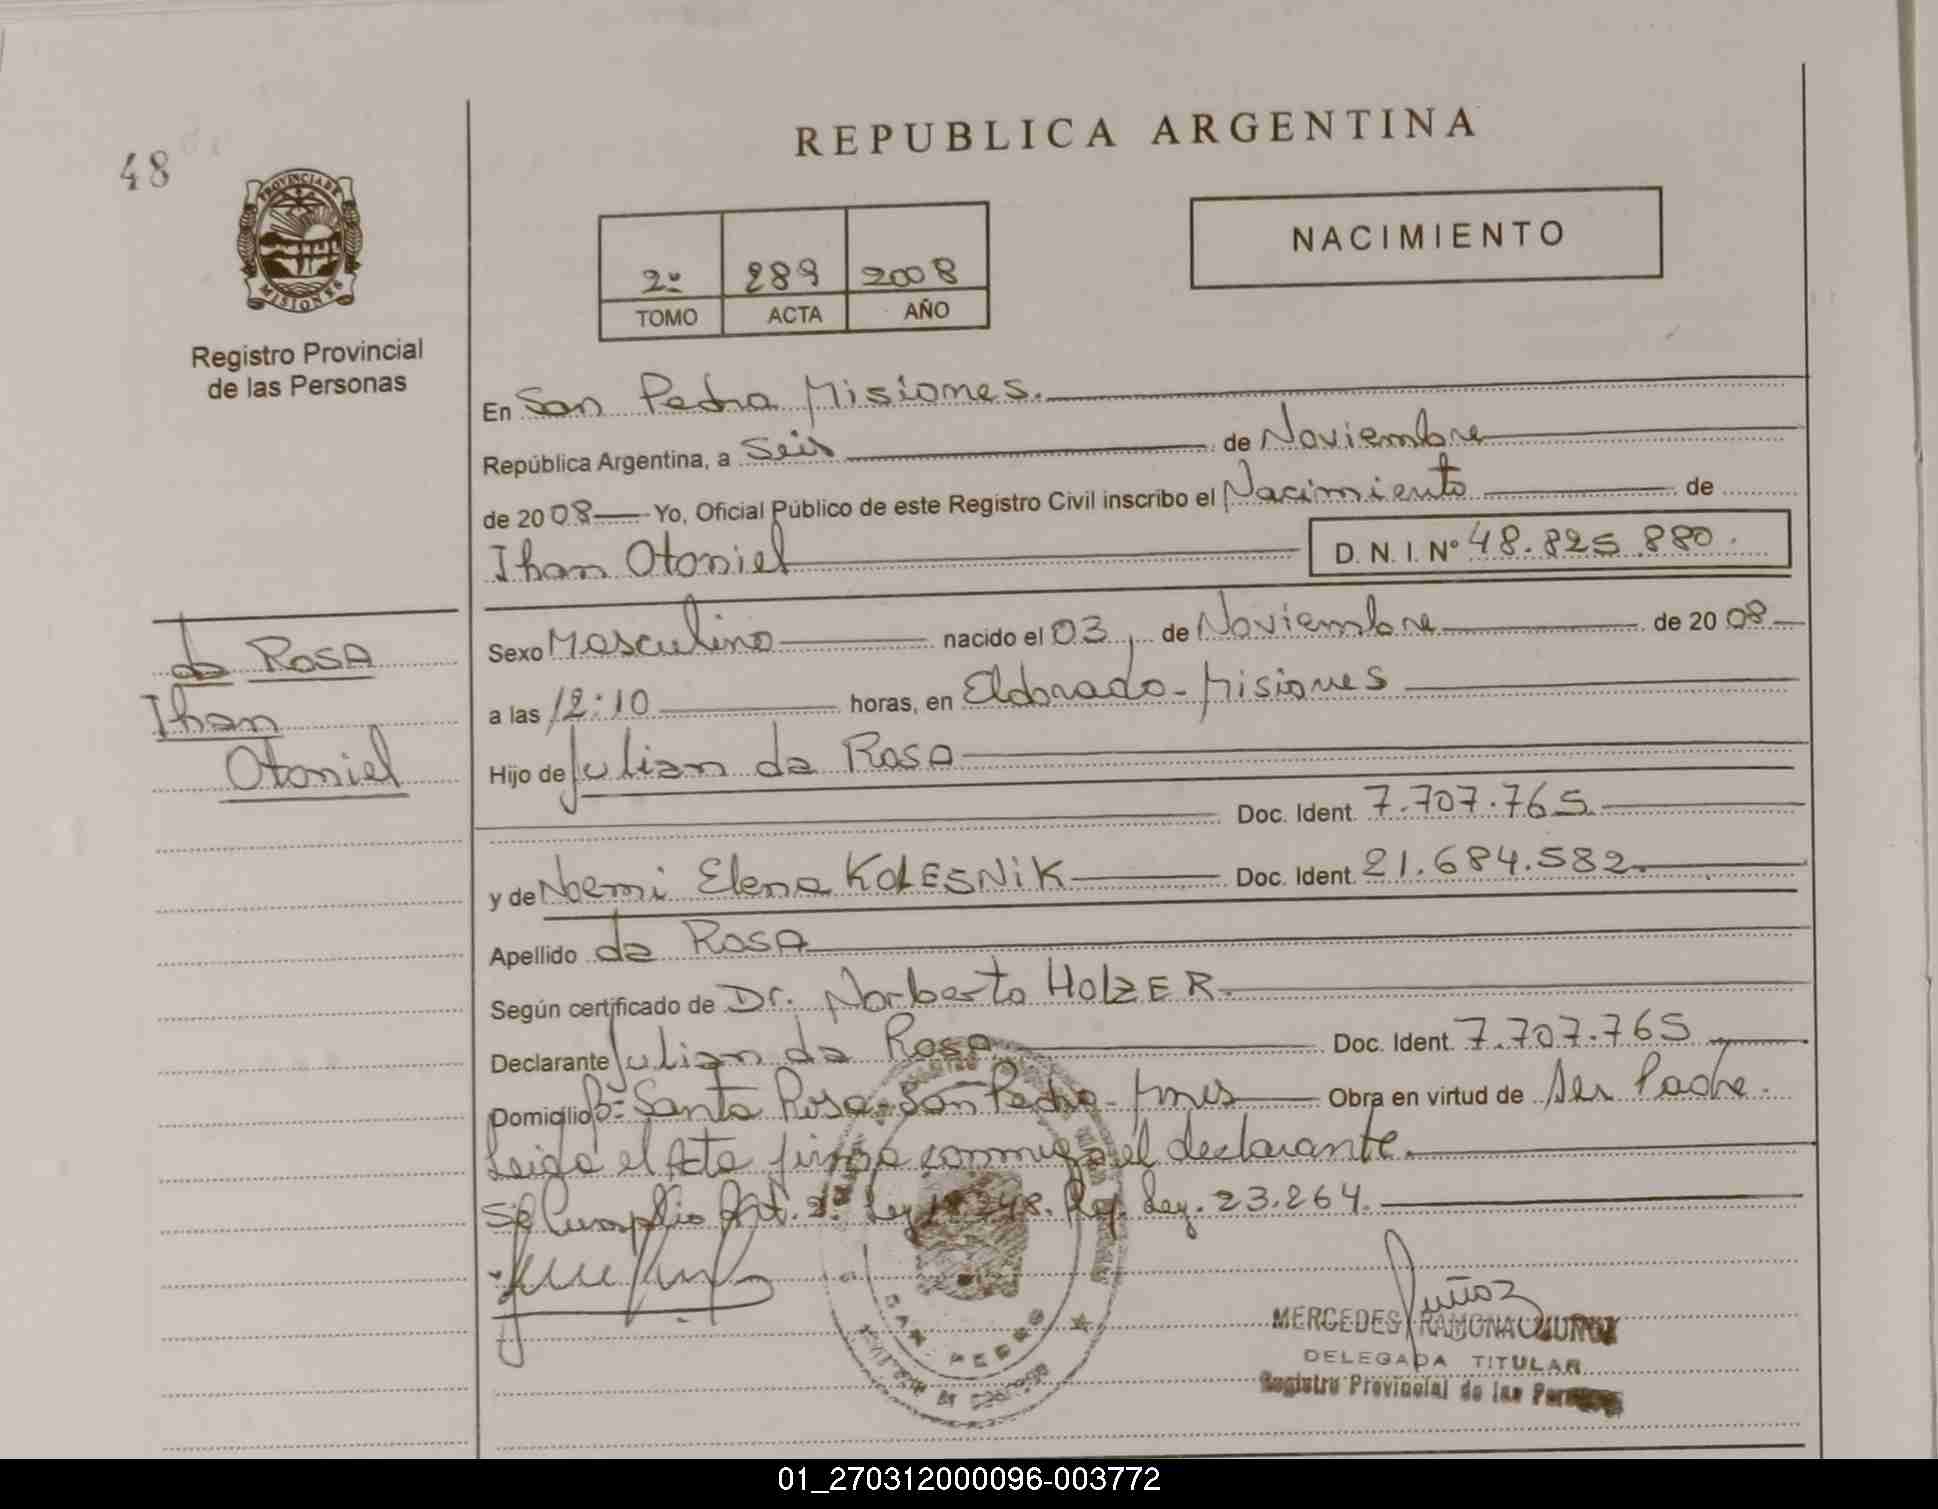 48
REPUBLICA ARGENTINA
PROVINCIA DE
MISIONES
Registro Provincial
de las Personas
2º 289 2008
TOMO ACTA AÑO
NACIMIENTO
En San Pedro Misiones.
República Argentina, a Seis de Noviembre
de 2008 Yo, Oficial Público de este Registro Civil inscribo el Nacimiento de
Ihan Otoniel D. N. I. Nº 48.825.880.
da ROSA
Ihan
Otoniel
Sexo Masculino nacido el 03, de Noviembre de 2008
a las 12:10 horas, en Eldorado - Misiones
Hijo de Julian da Rosa
Doc. Ident. 7.707.765
y de Noemi Elena KOLESNIK Doc. Ident. 21.684.582.
Apellido da ROSA
Según certificado de Dr. Norberto HOLZER.
Declarante Julian da Rosa Doc. Ident. 7.707.765
Domicilio Bº Santa Rosa - San Pedro - Mnes Obra en virtud de Ser Padre.
Leida el Acta firma conmigo el declarante.
Se Cumplio Art. 2. Ley 18248. Ley. 23.264.
Muñoz
MERCEDES RAMONA MUÑOZ
DELEGADA TITULAR
Registro Provincial de las Personas
SAN PEDRO
01_270312000096-003772